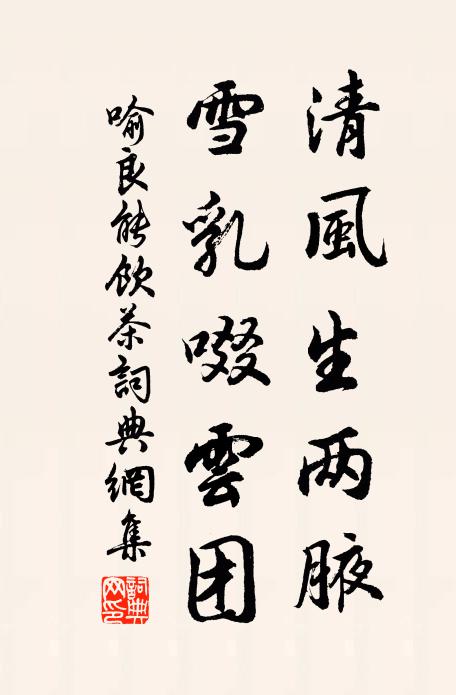 清風生两腋
雪乳啜雲团
喻良能飲茶詞典網集
詞典
网印